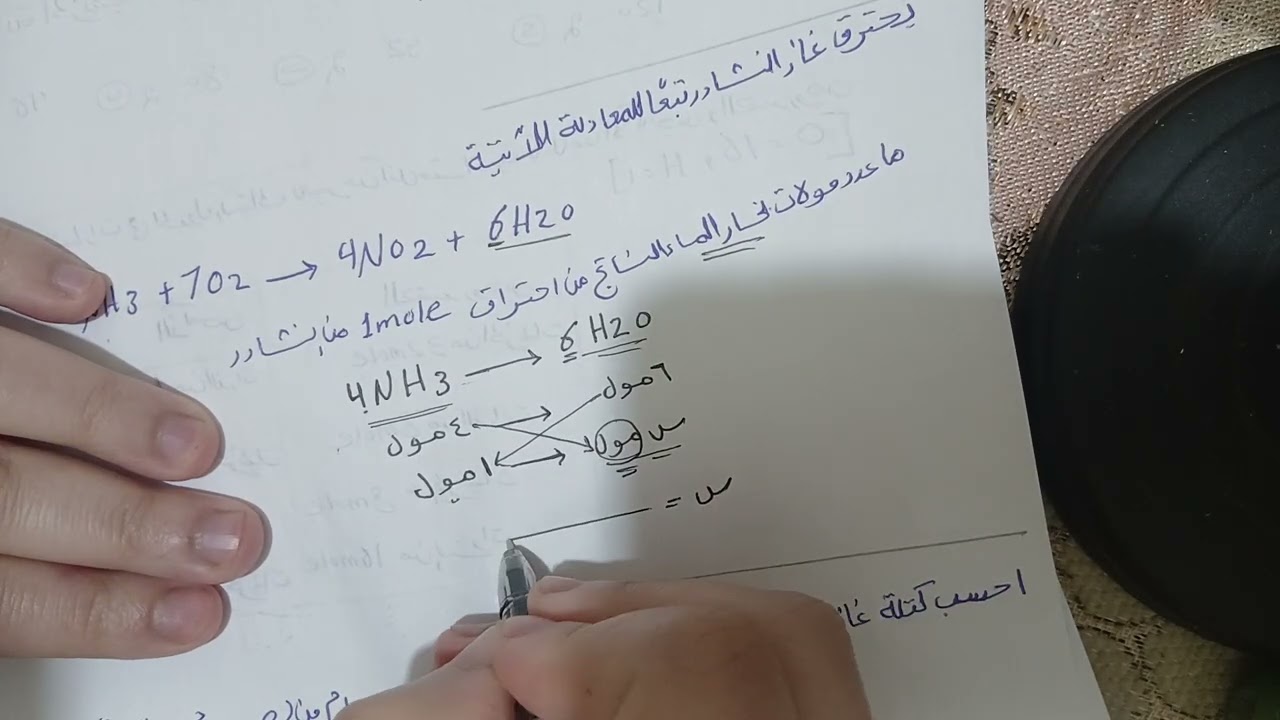 يحترق غاز النشادر تبعًا للمعادلة الآتية
H3 + 7O2 → 4NO2 + 6H2O
ما عدد مولات بخار الماء الناتج من احتراق 1mole من النشادر
4NH3 → 6H2O
٤ مول ٦ مول
١ مول س مول
س =
احسب كتلة غا